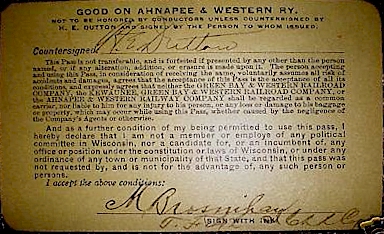 GOOD ON AHNAPEE & WESTERN RY.
NOT TO BE HONORED BY CONDUCTORS UNLESS COUNTERSIGNED BY
H. E. DUTTON AND SIGNED BY THE PERSON TO WHOM ISSUED.
Countersigned: H. E. Dutton
This Pass is not transferable, and is forfeited if presented by any other than the person
named, or if any alteration, addition, or erasure is made upon it. The person accepting
and using this Pass, in consideration of receiving the same, voluntarily assumes all risk of
accidents and damages, agrees that the acceptance of this Pass is the acceptance of all its
conditions, and expressly agrees that neither the GREEN BAY & WESTERN RAILROAD
COMPANY, the KEWAUNEE, GREEN BAY & WESTERN RAILROAD COMPANY, or
the AHNAPEE & WESTERN RAILWAY COMPANY shall be regarded as a common
carrier, nor liable to him for any injury to his person, or any loss or damage to his baggage
or property, which may occur while using this Pass, whether caused by the negligence of
the Company's Agents or otherwise.
And as a further condition of my being permitted to use this pass, I
hereby declare that I am not a member or employe of any political
committee in Wisconsin, nor a candidate for, or an incumbent of, any
office or position under the constitution or laws of Wisconsin, or under any
ordinance of any town or municipality of that State, and that this pass was
not requested by, and is not for the advantage of, any such person or
persons.
I accept the above conditions:
M Brosnihan
SIGN WITH INK